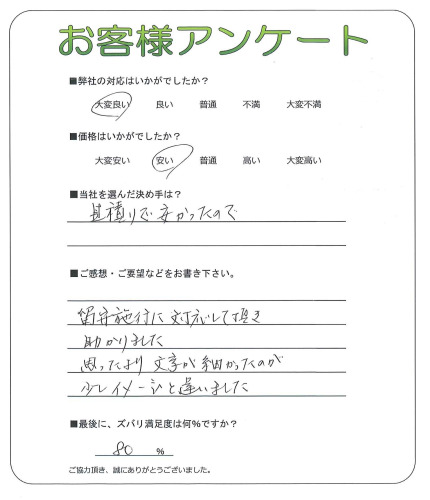 お客様アンケート
■弊社の対応はいかがでしたか？
大変良い 良い 普通 不満 大変不満
■価格はいかがでしたか？
大変安い 安い 普通 高い 大変高い
■当社を選んだ決め手は？
見積りで安かったので
■ご感想・ご要望などをお書き下さい。
留守施行に対応して頂き
助かりました
思ったより文字が細かったのが
少しイメージと違いました
■最後に、ズバリ満足度は何%ですか？
80 %
ご協力頂き、誠にありがとうございました。